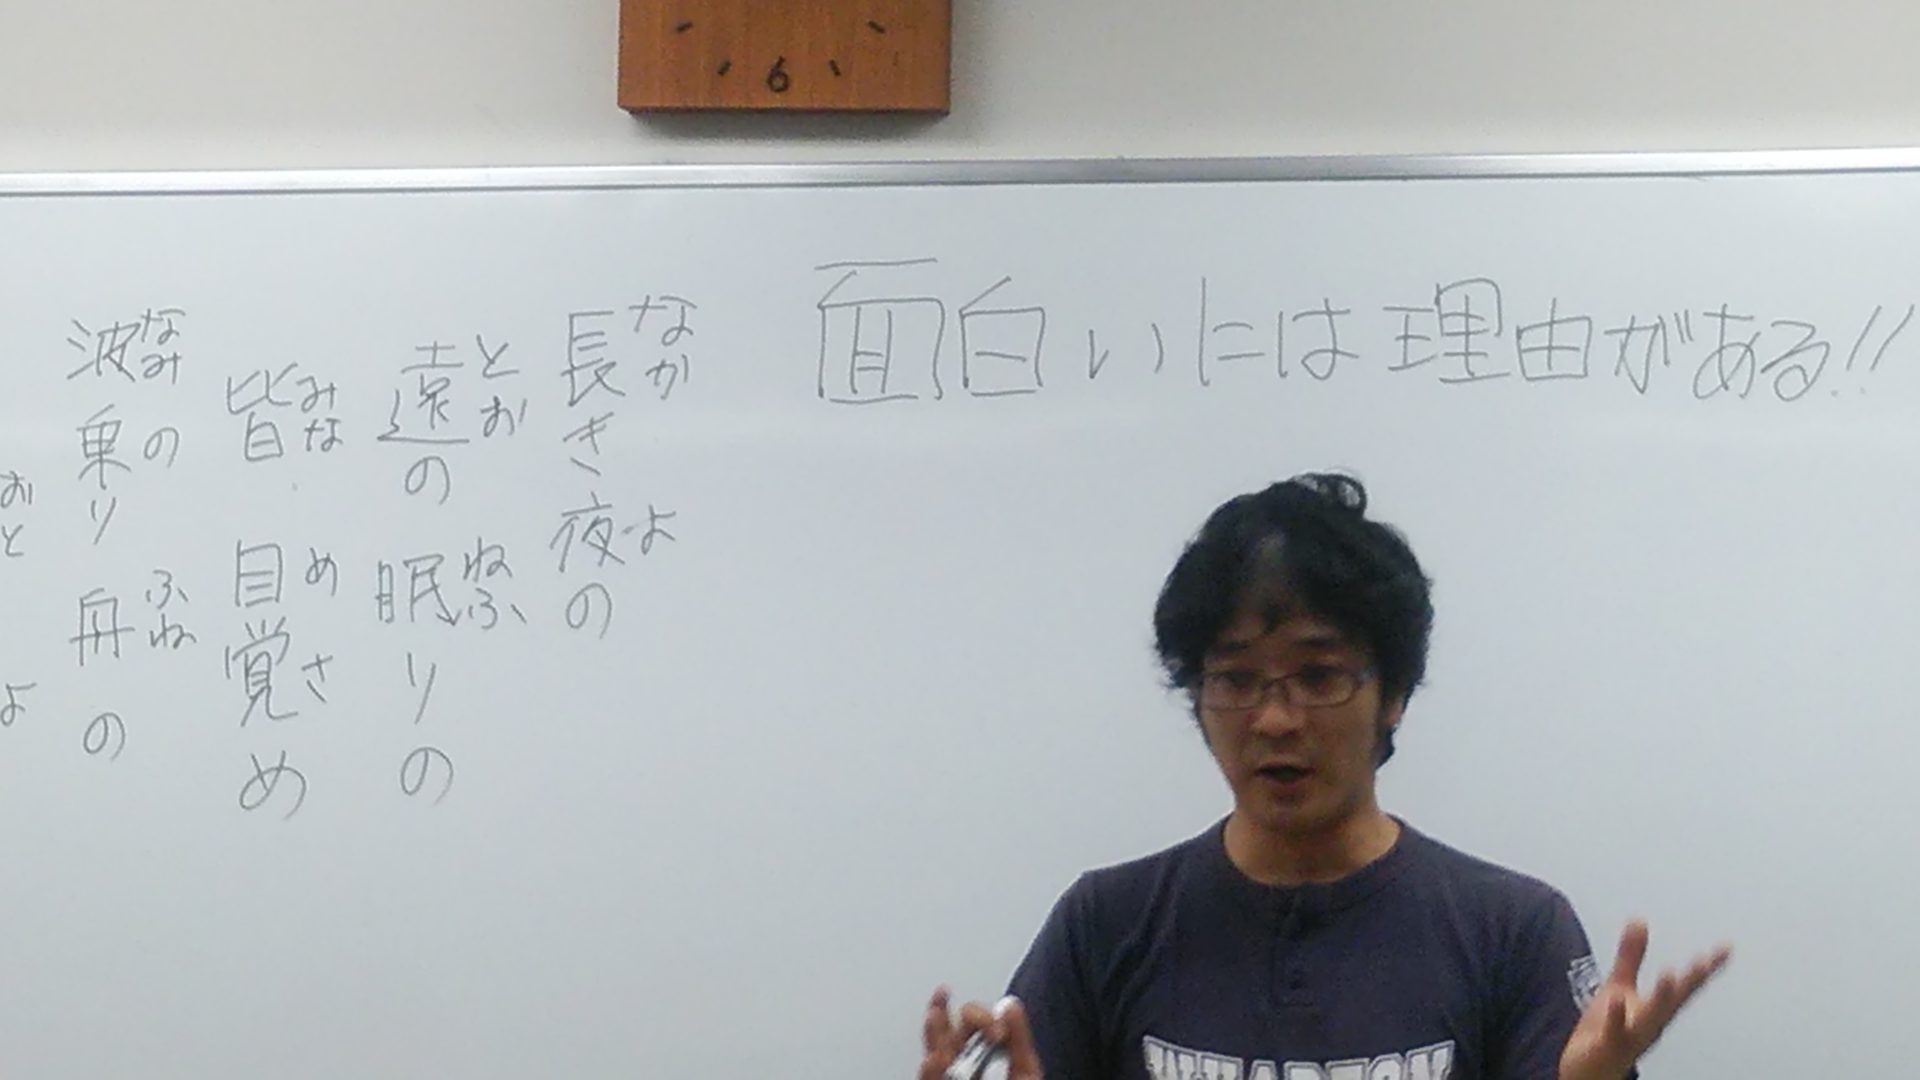 6
面白いには理由がある!!
長き夜の
なか よ
遠の 眠りの
とお ねふ
皆 目覚め
みな めさ
波乗り 舟の
なみの ふね
おと よ